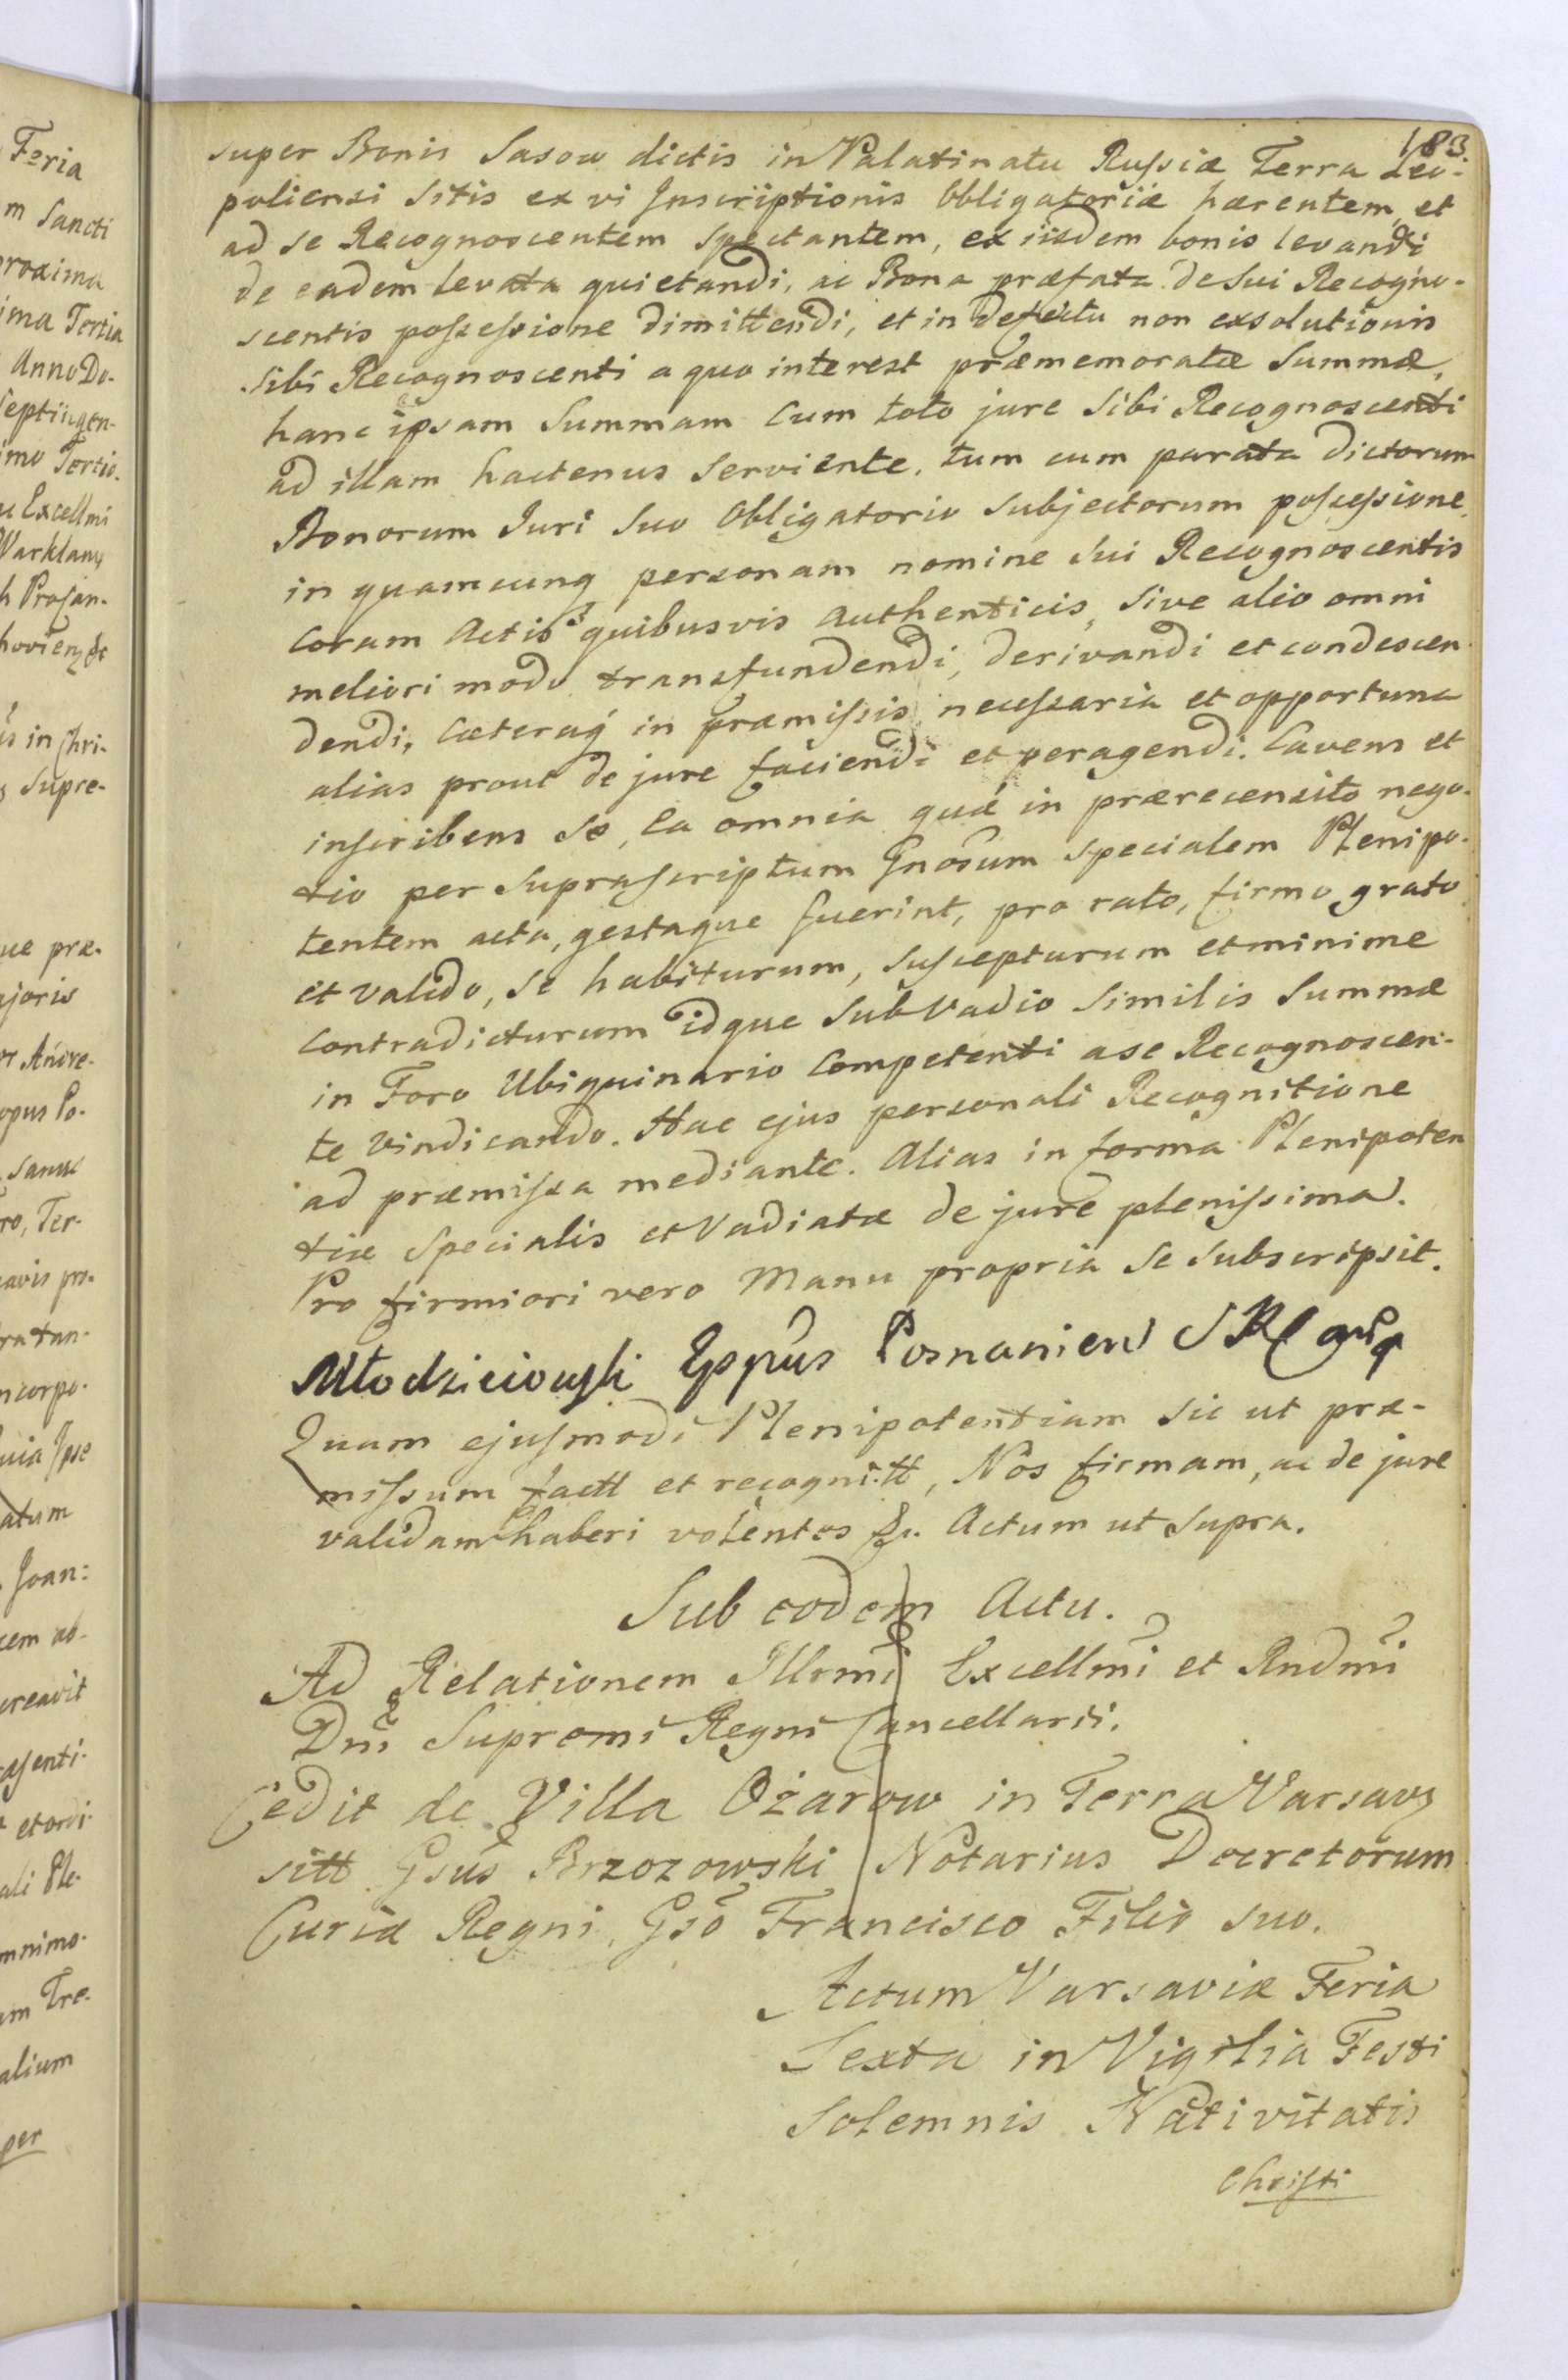 183
super Bonis Sasow dictis in Palatinatu Russiæ Terra Leo-
poliensi Sitis ex vi Inscriptionis Obligatoriæ hærentem, et
ad se Recognoscentem Spectantem, ex iisdem bonis levandi
de eadem levata quietandi, ac Bona præfata de Sui Recogno-
scentis possessione dimittendi, et in defectu non exsolutionis
Sibi Recognoscenti a quo interest præmemoratæ Summæ,
hanc ipsam Summam Cum toto jure Sibi Recognoscenti
ad illam hactenus Serviente, tum cum parata dictorum
Bonorum Juri Suo Obligatorio Subjectorum possessione,
in quamcunq personam nomine Sui Recognoscentis
Coram Actis quibusvis Authenticis, Sive alio omni
meliori modo transfundendi, derivandi et condescen
dendi, Cæteraq in præmissis necessaria et opportuna
alias prout de jure faciendi et peragendi. Cavens et
inscribens Se, Ea omnia quæ in prærecensito nego-
tio per Suprascriptum Gnosum Specialem Plenipo-
tentem acta, gestaque fuerint, pro rato, firmo, grato
et valido, Se habiturum, Suscepturum et minime
Contradicturum idque Sub Vadio Similis Summæ
in Foro Ubiquinario Competenti a se Recognoscen-
te vindicando. Hac ejus personali Recognitione
ad præmissa mediante. Alias in forma Plenipoten
tiæ Specialis et Vadiatæ de jure plenissima.
Pro firmiori vero Manu propria Se Subscripsit.
Młodzieiowski Eppus Posnanien
Quam ejusmodi Plenipotentiam Sic ut præ-
missum factt et recognitt, Nos firmam, ac de jure
validam haberi volentes &c. Actum ut Supra.
Sub eodem Actu.
Ad Relationem Illrmi Excellmi et Rndmi
Dni Supremi Regni Cancellarii.
Cedit de Villa Ożarow in Terra Varsavs
sitt Gsus Brzozowski Notarius Decretorum
Curiæ Regni, Gso Francisco Filio suo.
Actum Varsaviæ Feria
Sexta in Vigilia Festi
Solemnis Nativitatis
Christi
Feria
m Sancti
proxima
ima Tertia
Anno Do-
Septingen-
imo Tertio.
Excellmi
in Chri-
Supre-
ue præ-
ajoris
Andre-
opus Po-
Sanus
ro, Ter-
ncorpo-
uia Ipse
atum
Joan:
creavit
asenti-
et ordi-
ali Ple-
mnimo-
um Tre-
alium
per